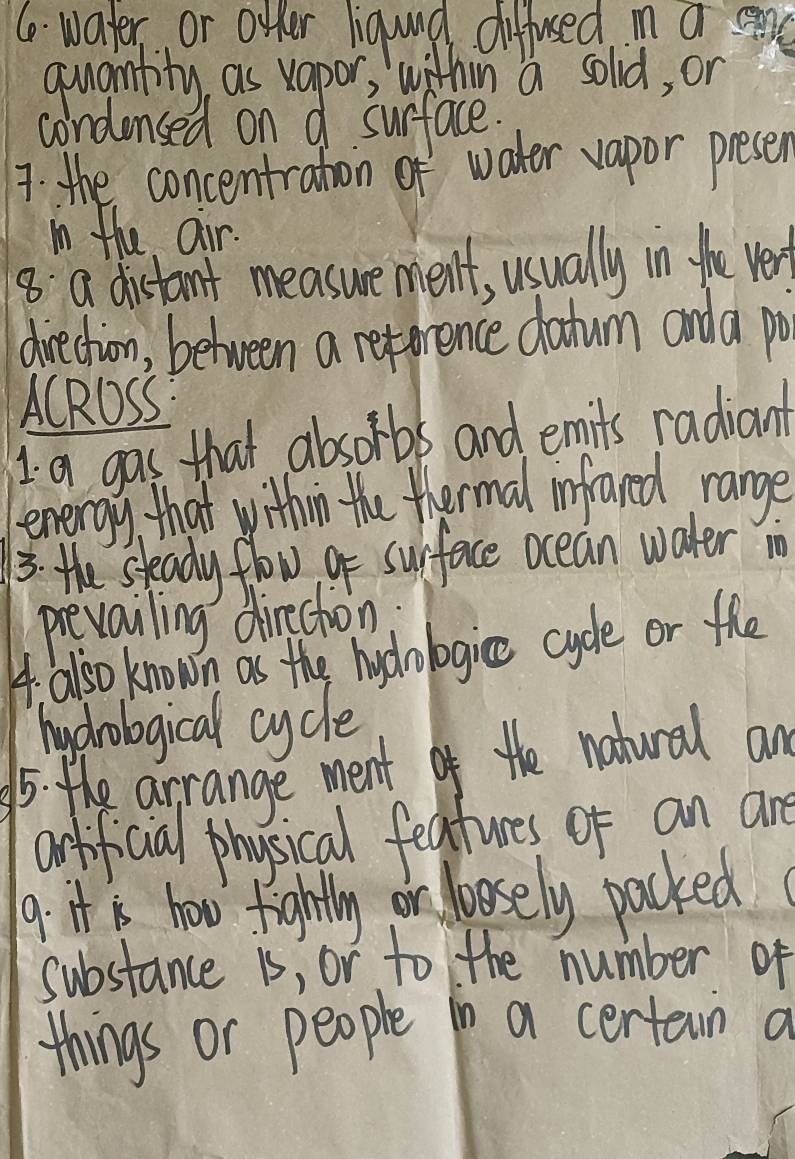 6. water or other liquid diffused in a
quantity as vapor, within a solid, or
condensed on a surface.
7. the concentration of water vapor presen
in the air.
8. a distant measurement, usually in the vert
direction, between a reference datum and a poi
ACROSS:
1. a gas that absorbs and emits radiant
energy that within the thermal infrared range
3. the steady flow of surface ocean water in
prevailing direction.
4. also known as the hydrologic cycle or the
hydrological cycle
5. the arrange ment of the natural and
artificial physical features of an are
9. it is how tightly or loosely packed
substance is, or to the number of
things or people in a certain a